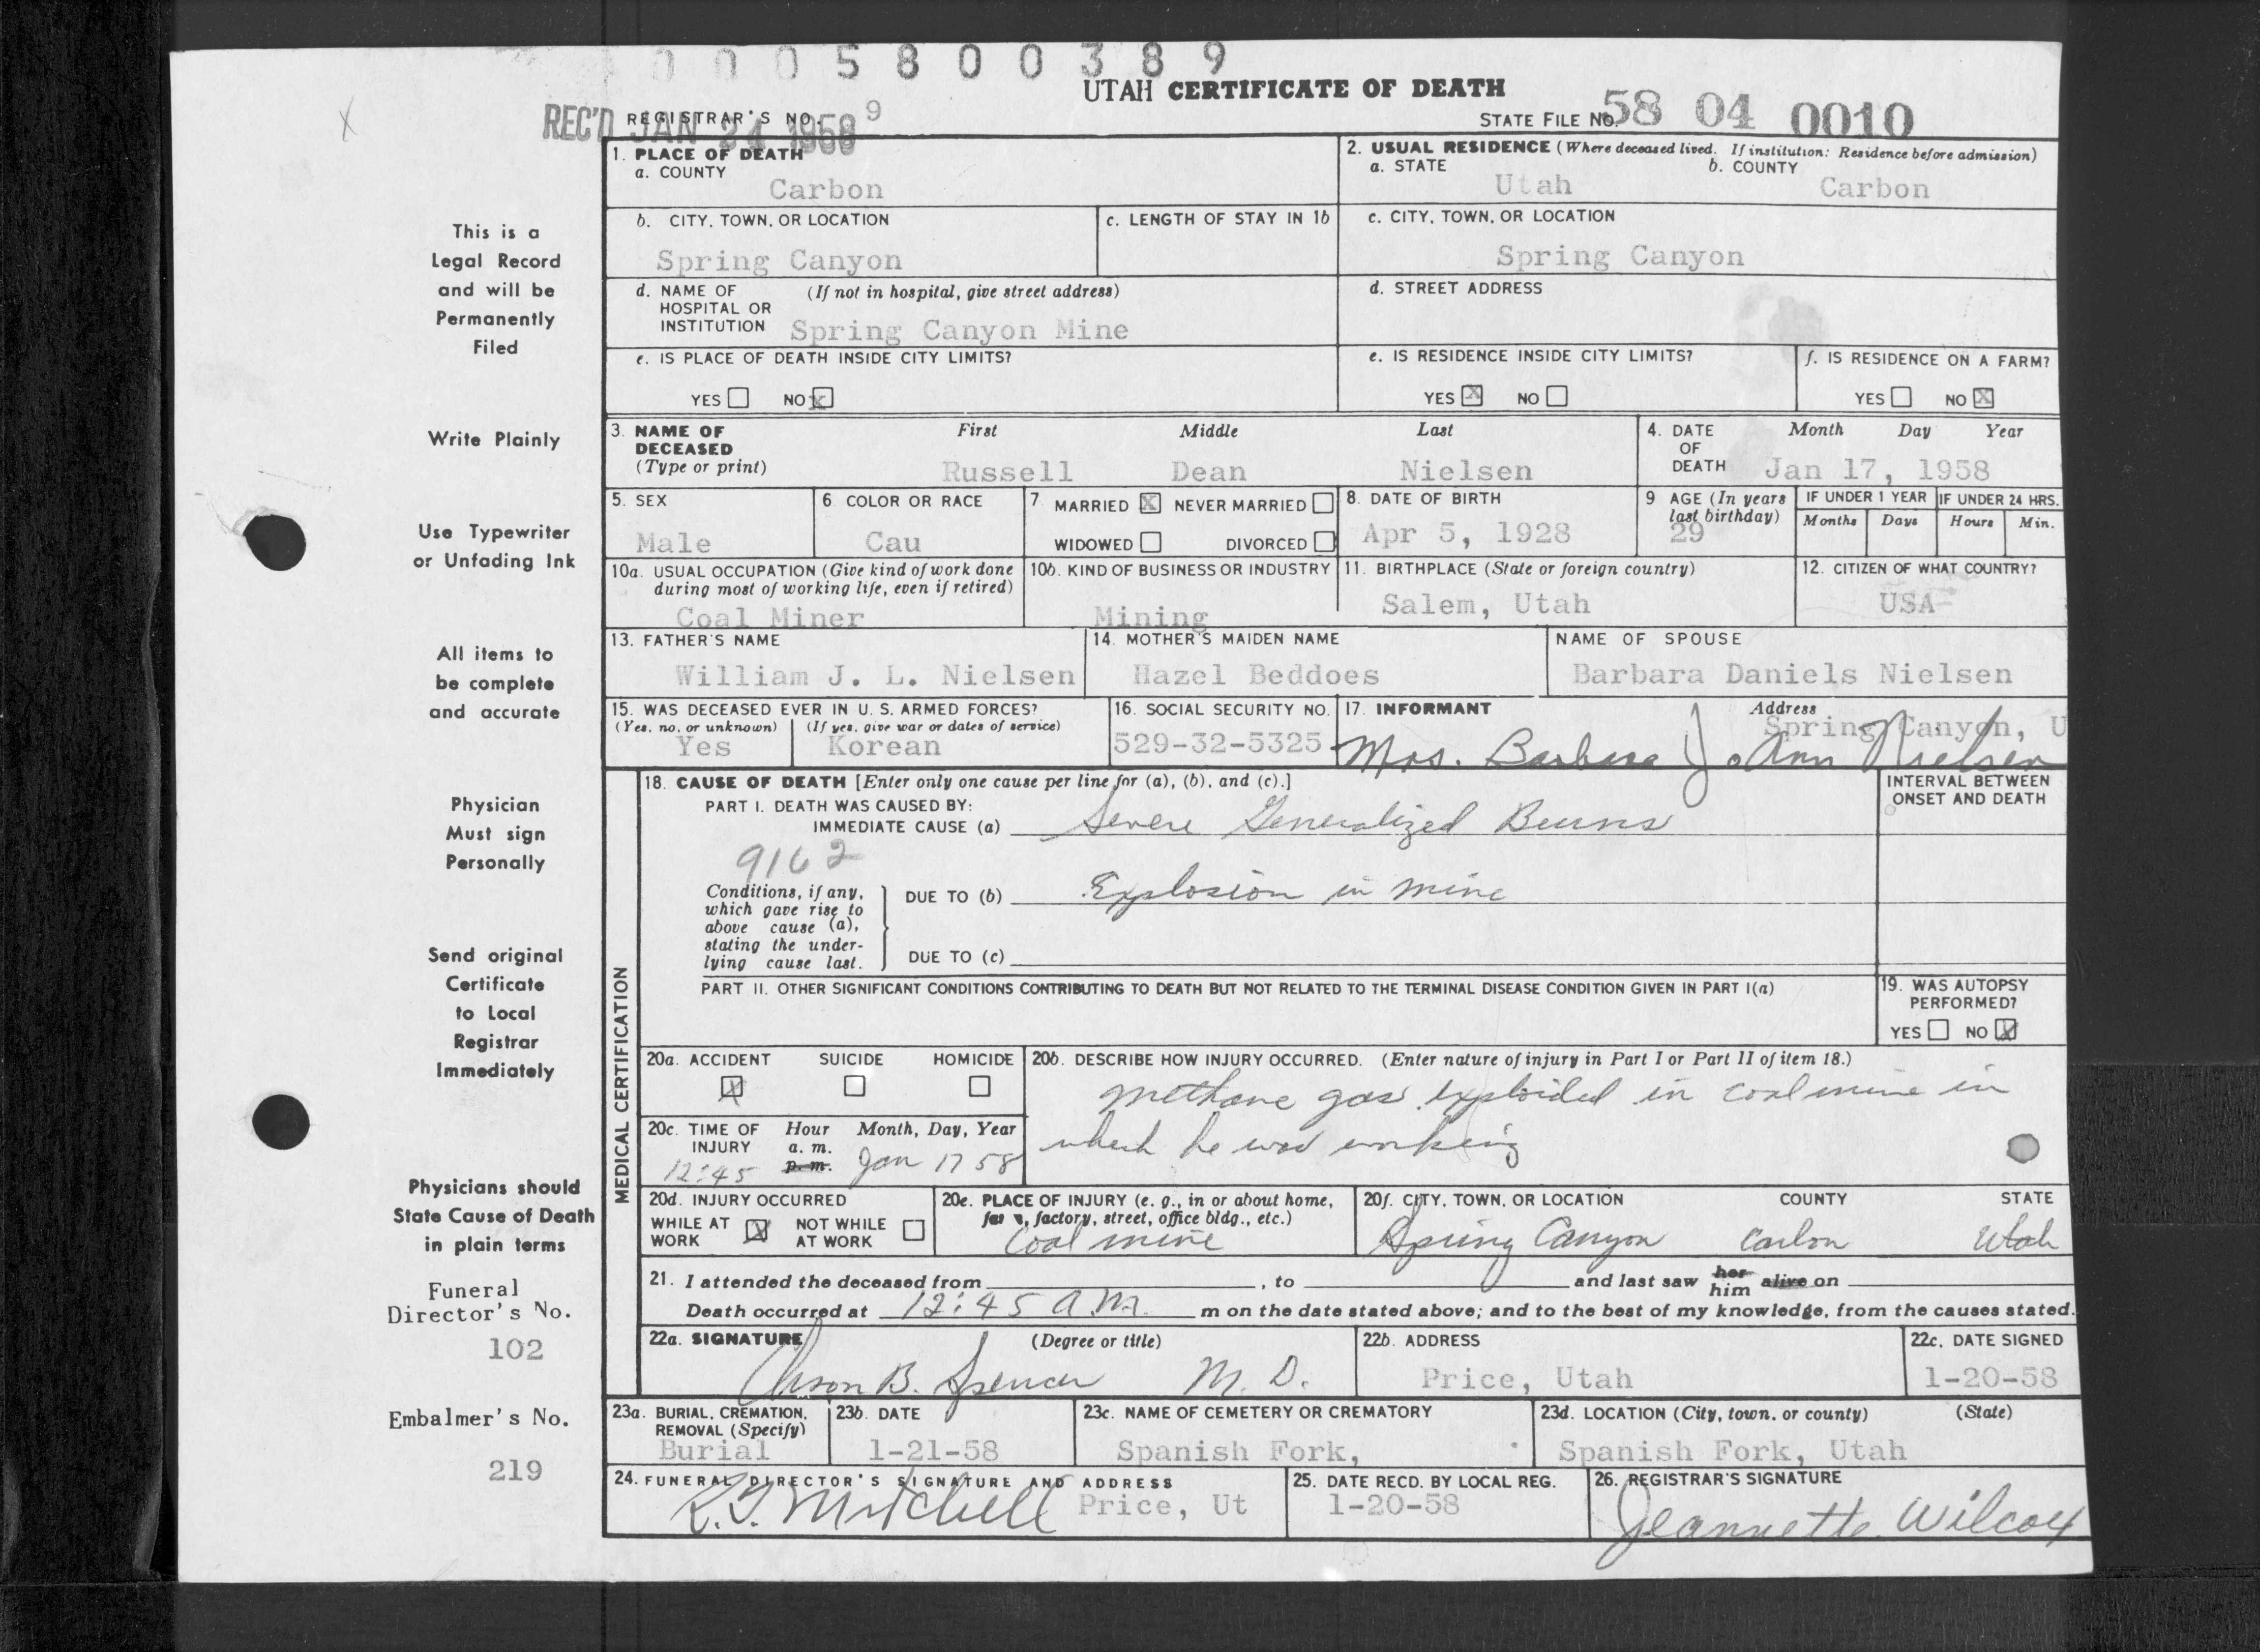 0 0 0 5 8 0 0 3 8 9
UTAH CERTIFICATE OF DEATH
REC'D JAN 24 1958
REGISTRAR'S NO. 9
STATE FILE NO. 58 04 0010
1. PLACE OF DEATH
a. COUNTY
Carbon
2. USUAL RESIDENCE (Where deceased lived. If institution: Residence before admission)
a. STATE b. COUNTY
Utah Carbon
b. CITY, TOWN, OR LOCATION
Spring Canyon
c. LENGTH OF STAY IN 1b
c. CITY, TOWN, OR LOCATION
Spring Canyon
d. NAME OF (If not in hospital, give street address)
HOSPITAL OR
INSTITUTION Spring Canyon Mine
d. STREET ADDRESS
e. IS PLACE OF DEATH INSIDE CITY LIMITS?
YES NO X
e. IS RESIDENCE INSIDE CITY LIMITS?
YES X NO
f. IS RESIDENCE ON A FARM?
YES NO X
3. NAME OF First Middle Last
DECEASED
(Type or print) Russell Dean Nielsen
4. DATE Month Day Year
OF
DEATH Jan 17, 1958
5. SEX
Male
6. COLOR OR RACE
Cau
7. MARRIED X NEVER MARRIED
WIDOWED DIVORCED
8. DATE OF BIRTH
Apr 5, 1928
9 AGE (In years
last birthday)
29
IF UNDER 1 YEAR IF UNDER 24 HRS.
Months Days Hours Min.
10a. USUAL OCCUPATION (Give kind of work done
during most of working life, even if retired)
Coal Miner
10b. KIND OF BUSINESS OR INDUSTRY
Mining
11. BIRTHPLACE (State or foreign country)
Salem, Utah
12. CITIZEN OF WHAT COUNTRY?
USA
13. FATHER'S NAME
William J. L. Nielsen
14. MOTHER'S MAIDEN NAME
Hazel Beddoes
NAME OF SPOUSE
Barbara Daniels Nielsen
15. WAS DECEASED EVER IN U. S. ARMED FORCES?
(Yes, no, or unknown) (If yes, give war or dates of service)
Yes Korean
16. SOCIAL SECURITY NO.
529-32-5325
17. INFORMANT Address
Spring Canyon, U
Mrs. Barbara JoAnn Nielsen
MEDICAL CERTIFICATION
18. CAUSE OF DEATH [Enter only one cause per line for (a), (b), and (c).]
PART I. DEATH WAS CAUSED BY:
IMMEDIATE CAUSE (a) Severe Generalized Burns
INTERVAL BETWEEN
ONSET AND DEATH
9162
Conditions, if any,
which gave rise to
above cause (a),
stating the under-
lying cause last.
DUE TO (b) Explosion in mine
DUE TO (c)
PART II. OTHER SIGNIFICANT CONDITIONS CONTRIBUTING TO DEATH BUT NOT RELATED TO THE TERMINAL DISEASE CONDITION GIVEN IN PART I(a)
19. WAS AUTOPSY
PERFORMED?
YES NO X
20a. ACCIDENT SUICIDE HOMICIDE
X
20b. DESCRIBE HOW INJURY OCCURRED. (Enter nature of injury in Part I or Part II of item 18.)
methane gas exploided in coal mine in
which he was working
20c. TIME OF Hour Month, Day, Year
INJURY a. m.
12:45 p. m. Jan 17 58
20d. INJURY OCCURRED
WHILE AT X NOT WHILE
WORK AT WORK
20e. PLACE OF INJURY (e. g., in or about home,
farm, factory, street, office bldg., etc.)
Coal mine
20f. CITY, TOWN, OR LOCATION COUNTY STATE
Spring Canyon Carbon Utah
21. I attended the deceased from , to and last saw her him alive on
Death occurred at 12:45 A.M. m on the date stated above; and to the best of my knowledge, from the causes stated.
22a. SIGNATURE (Degree or title)
B. Spencer M. D.
22b. ADDRESS
Price, Utah
22c. DATE SIGNED
1-20-58
23a. BURIAL, CREMATION,
REMOVAL (Specify)
Burial
23b. DATE
1-21-58
23c. NAME OF CEMETERY OR CREMATORY
Spanish Fork,
23d. LOCATION (City, town, or county) (State)
Spanish Fork, Utah
24. FUNERAL DIRECTOR'S SIGNATURE AND ADDRESS
Mitchell Price, Ut
25. DATE RECD. BY LOCAL REG.
1-20-58
26. REGISTRAR'S SIGNATURE
Jeannette Wilcox
This is a
Legal Record
and will be
Permanently
Filed
Write Plainly
Use Typewriter
or Unfading Ink
All items to
be complete
and accurate
Physician
Must sign
Personally
Send original
Certificate
to Local
Registrar
Immediately
Physicians should
State Cause of Death
in plain terms
Funeral
Director's No.
102
Embalmer's No.
219